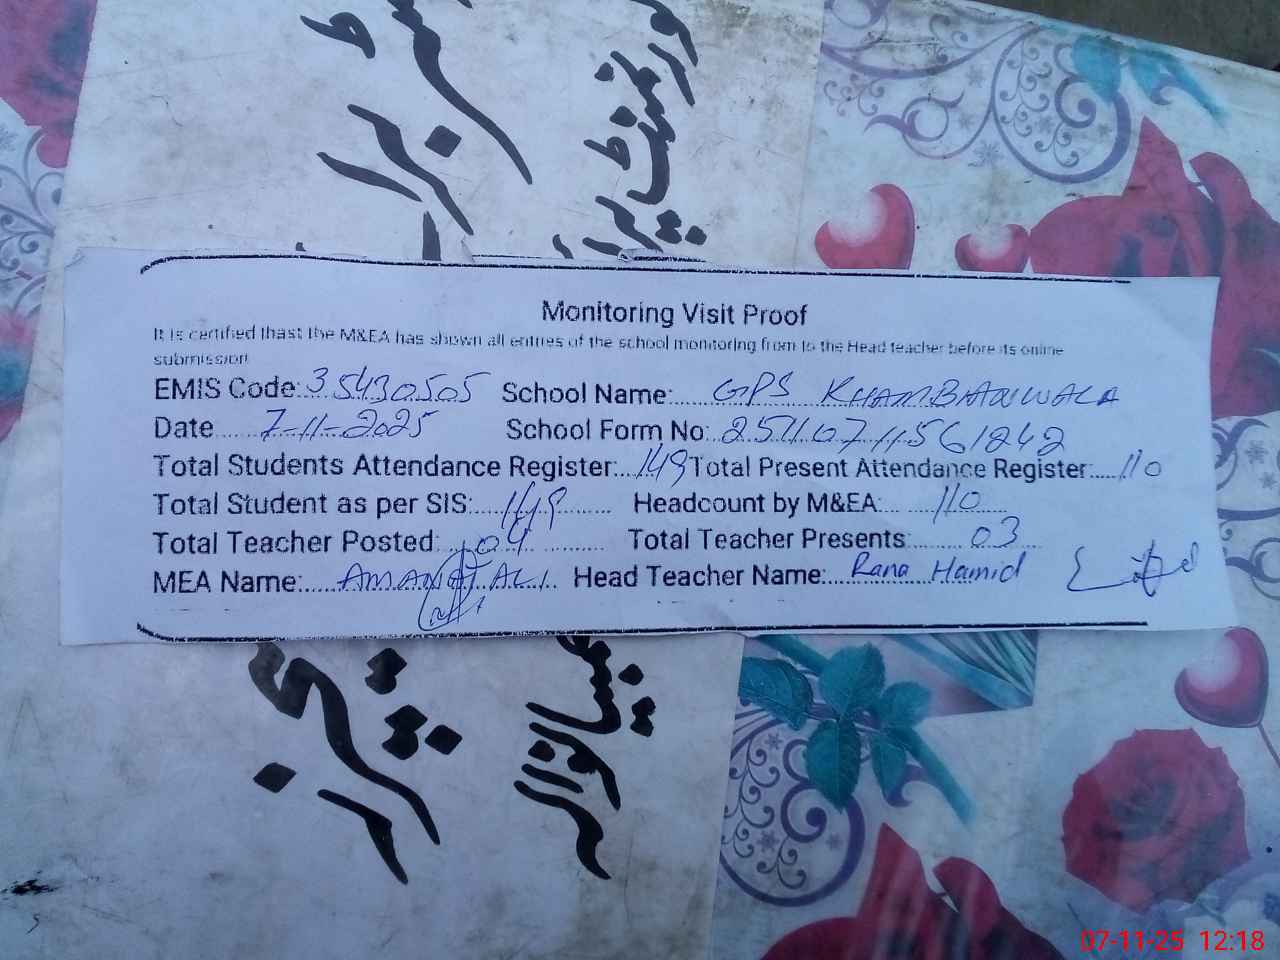 گورنمنٹ پرا
Monitoring Visit Proof
It is certified thast the M&EA has shown all entries of the school monitoring from to the Head teacher before its online
submission
EMIS Code: 35430505 School Name: GPS KHAMBHANWALA
Date 7-11-2025 School Form No: 25110711561242
Total Students Attendance Register: 149 Total Present Attendance Register: 110
Total Student as per SIS: 149 Headcount by M&EA: 110
Total Teacher Posted: 04 Total Teacher Presents: 03
MEA Name: AMANAT ALI Head Teacher Name: Rana Hamid
07-11-25 12:18